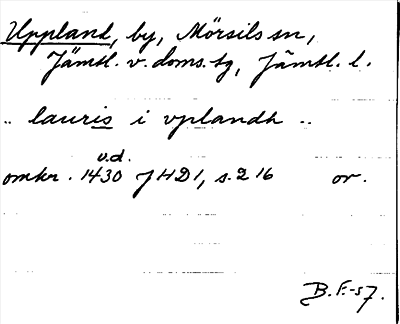 Uppland, by, Mörsils sn,
Jämtl. v. doms. tg, Jämtl. l.
.. lauris i vplandh ..
v.d.
omkr. 1430 JHD1, s. 216 or.
B. F.-57.